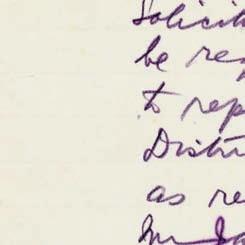 Solicit
be re
to rep
Distri
as re